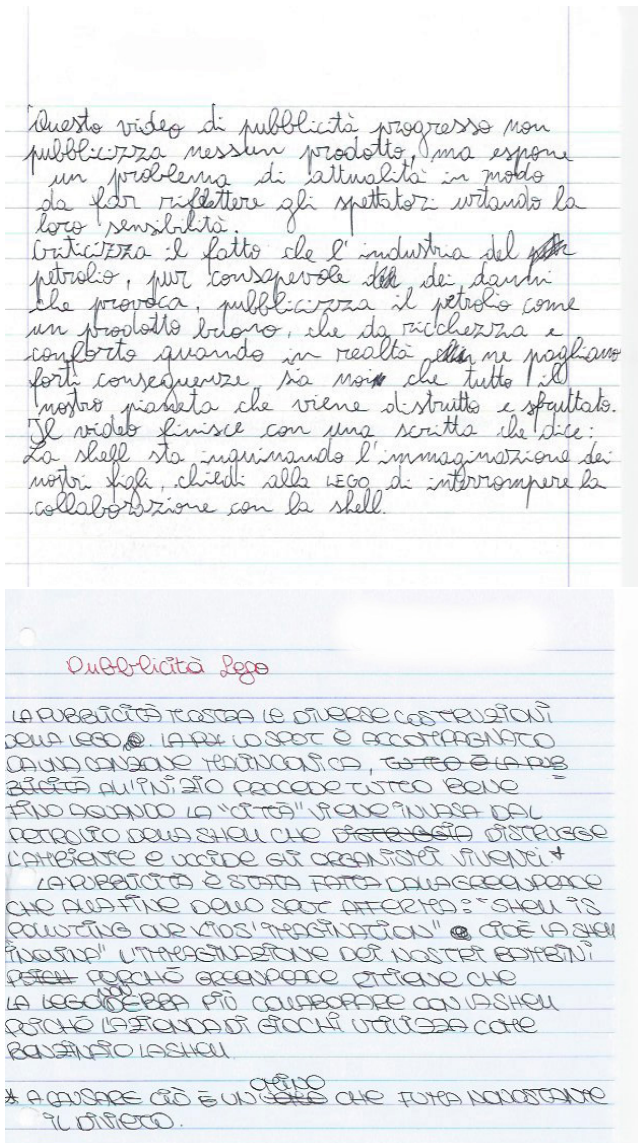 Questo video di pubblicità progresso non
pubblicizza nessun prodotto, ma espone
un problema di attualità in modo
da far riflettere gli spettatori urtando la
loro sensibilità.
Criticizza il fatto che l'industria del
petrolio, pur consapevole dei danni
che provoca, pubblicizza il petrolio come
un prodotto buono, che da ricchezza e
conforto quando in realtà ne paghiamo
forti conseguenze, sia noi che tutto il
nostro pianeta che viene distrutto e sfruttato.
Il video finisce con una scritta che dice:
La shell sta inquinando l'immaginazione dei
nostri figli, chiedi alla LEGO di interrompere la
collaborazione con la shell.
Pubblicità Lego
LA PUBBLICITÀ MOSTRA LE DIVERSE COSTRUZIONI
DELLA LEGO. LA PU LO SPOT È ACCOMPAGNATO
DA UNA CANZONE MALINCONICA, TUTTO È LA PUB
BLICITÀ ALL'INIZIO PROCEDE TUTTO BENE
FINO A QUANDO LA "CITTÀ" VIENE INVASA DAL
PETROLIO DELLA SHELL CHE DISTRUGGIA DISTRUGGE
L'AMBIENTE E UCCIDE GLI ORGANISMI VIVENTI.*
LA PUBBLICITÀ È STATA FATTA DALLA GREENPEACE
CHE ALLA FINE DELLO SPOT AFFERMA: "SHELL IS
POLLUTING OUR KIDS' IMAGINATION" CIOÈ LA SHELL
INQUINA" L'IMMAGINAZIONE DEI NOSTRI BAMBINI
PERCHÉ GREENPEACE RITIENE CHE
LA LEGO NON DEBBA PIÙ COLLABORARE CON LA SHELL
POICHÉ L'AZIENDA DI GIOCHI UTILIZZA COME
BENZINAIO LA SHELL.
* A CAUSARE CIÒ È UN OMINO CHE FUMA NONOSTANTE
IL DIVIETO.